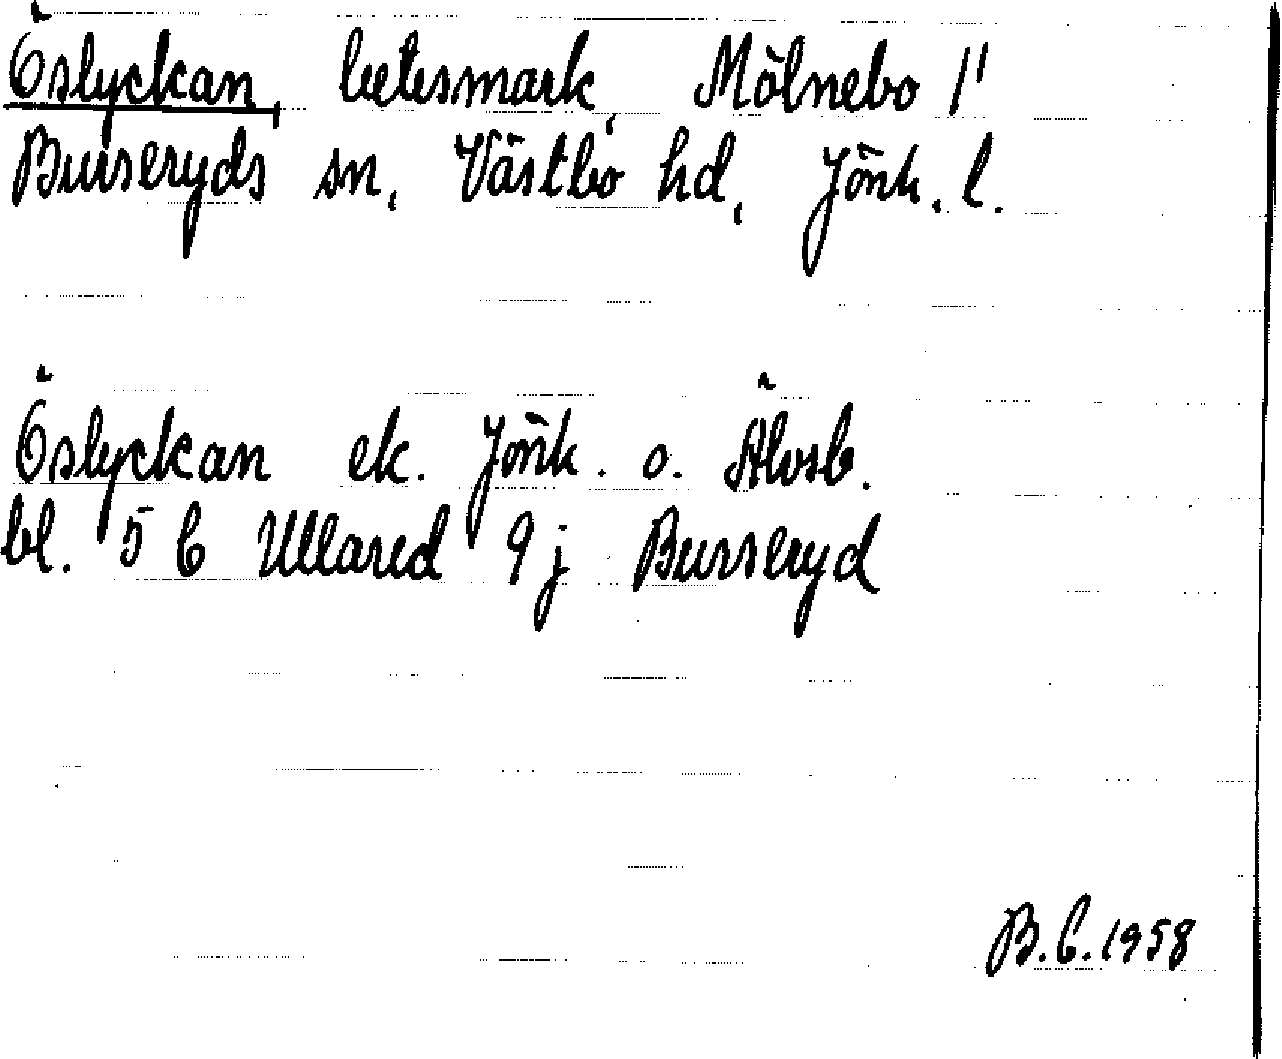 Öslyckan, betesmark, Mölnebo 1¹
Burseryds sn, Västbo hd, Jönk. l.
Öslyckan ek. Jönk. o. Älvsb.
bl. 5 C Ullared 9 j Burseryd
B.C. 1958